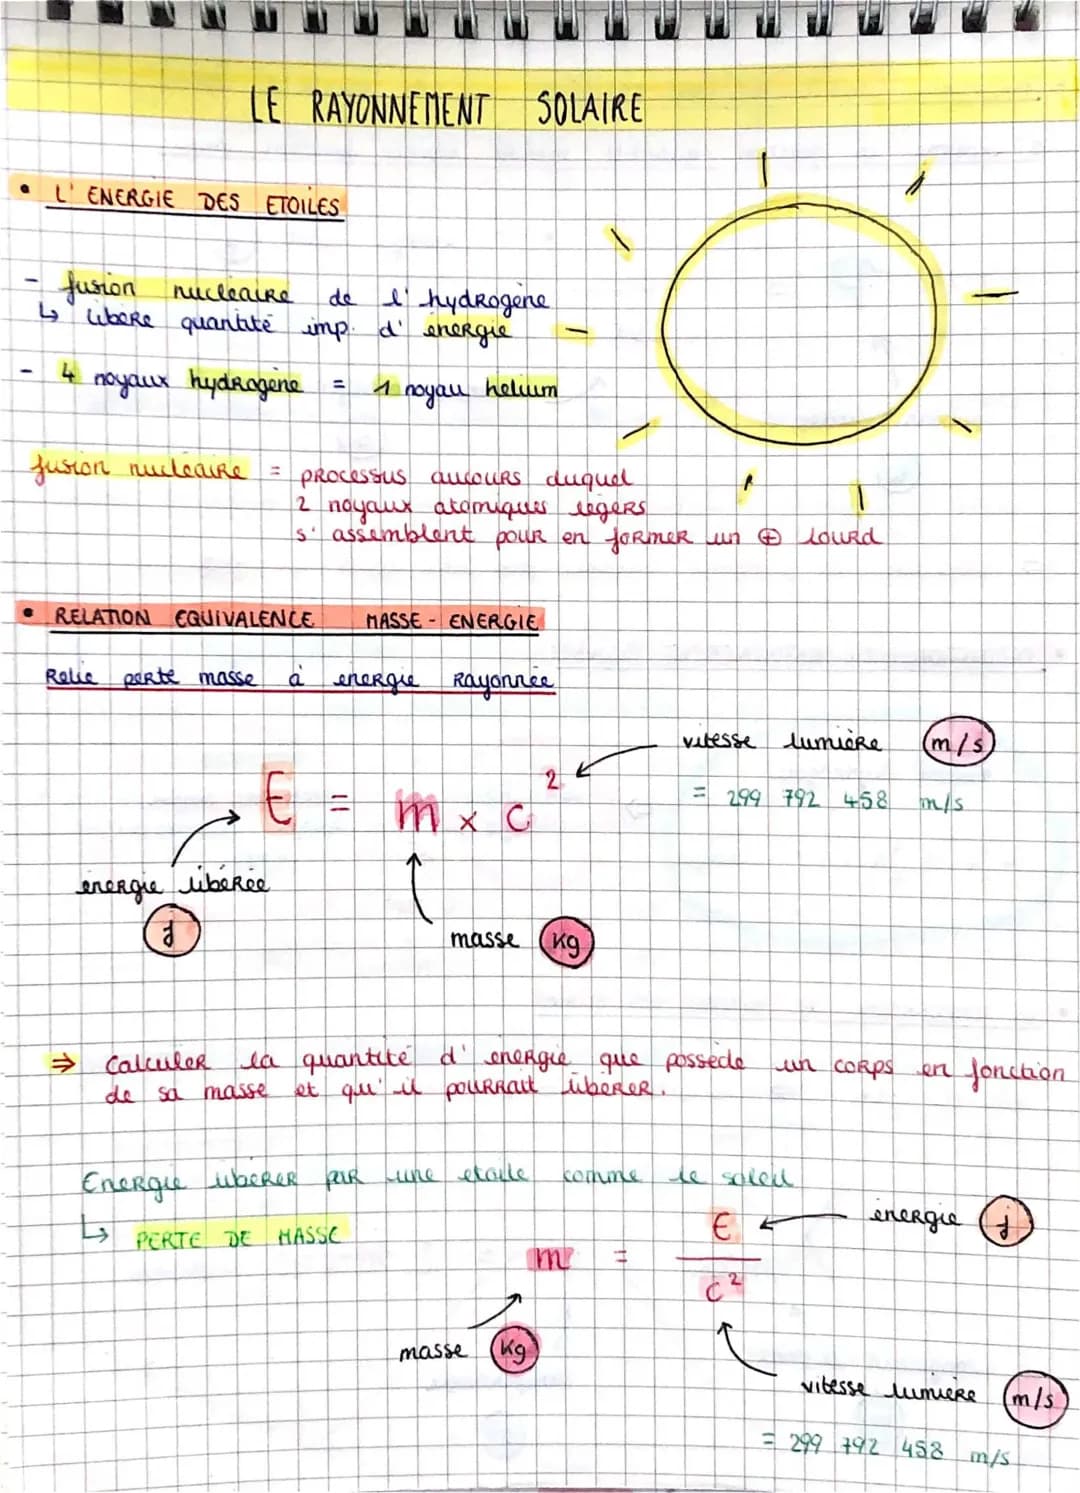 LE RAYONNEMENT SOLAIRE
• L'ENERGIE DES ETOILES
- fusion nucléaire de l'hydrogène
↳ libère quantité imp. d'énergie
- 4 noyaux hydrogène = 1 noyau helium
fusion nucléaire = processus aucours duquel
2 noyaux atomiques légers
s'assemblent pour en former un ⊕ lourd
• RELATION EQUIVALENCE MASSE - ENERGIE
Relie perte masse à énergie Rayonnée
vitesse lumière m/s
= 299 792 458 m/s
E = m × c²
énergie libérée
J
masse kg
⇒ Calculer la quantité d'énergie que possède un corps en fonction
de sa masse et qu'il pourrait libérer.
Energie libérer par une étoile comme le soleil
↳ PERTE DE MASSE
énergie J
m = E / c²
masse kg
vitesse lumière m/s
= 299 792 458 m/s